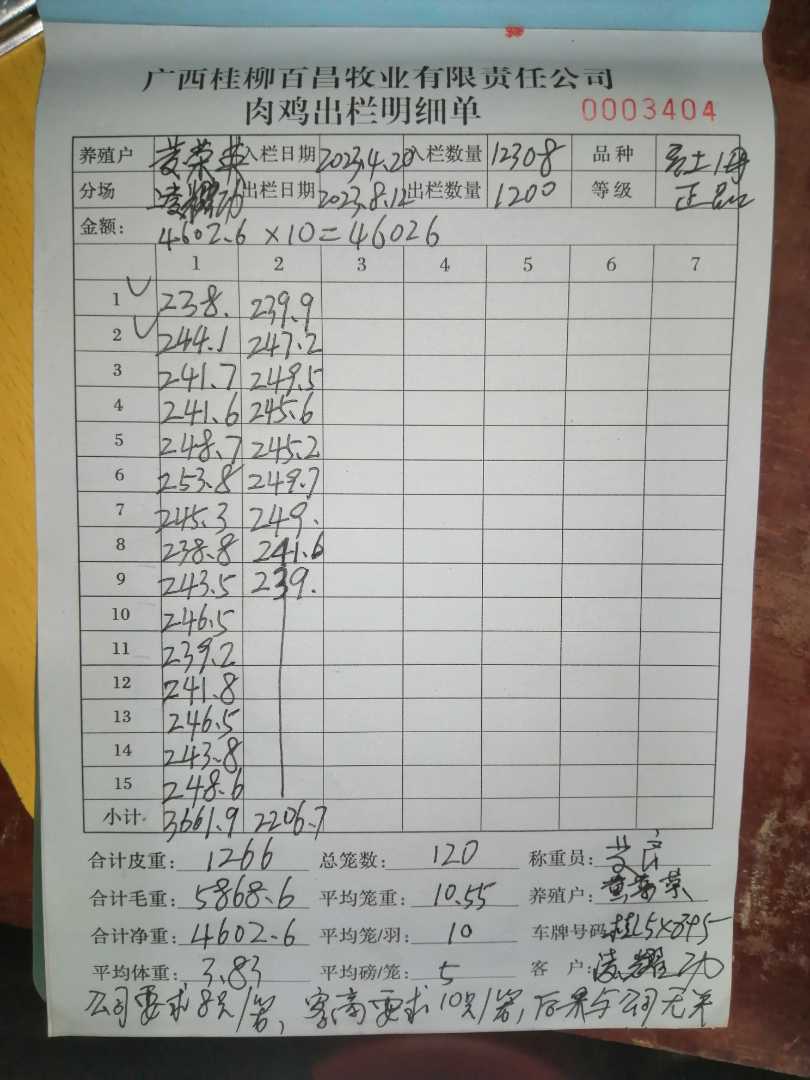 广西桂柳百昌牧业有限责任公司
肉鸡出栏明细单 0003404
养殖户 黄荣英 入栏日期 2023.4.20 入栏数量 12308 品种
分场 凌耀功 出栏日期 2023.8.12 出栏数量 1200 等级 正品
金额: 4602.6 ×10=46026
1 2 3 4 5 6 7
1 238. 239.9
2 244.1 247.2
3 241.7 249.5
4 241.6 245.6
5 248.7 245.2
6 253.8 249.7
7 245.3 249.
8 238.8 241.6
9 243.5 239.
10 246.5
11 239.2
12 241.8
13 246.5
14 243.8
15 248.6
小计. 3661.9 2206.7
合计皮重: 1266 总笼数: 120 称重员:
合计毛重: 5868.6 平均笼重: 10.55 养殖户:
合计净重: 4602.6 平均笼/羽: 10 车牌号码
平均体重: 3.83 平均磅/笼: 5 客 户: 凌耀功
公司要求8只/笼, 客商要求10只/笼, 后果与公司无关